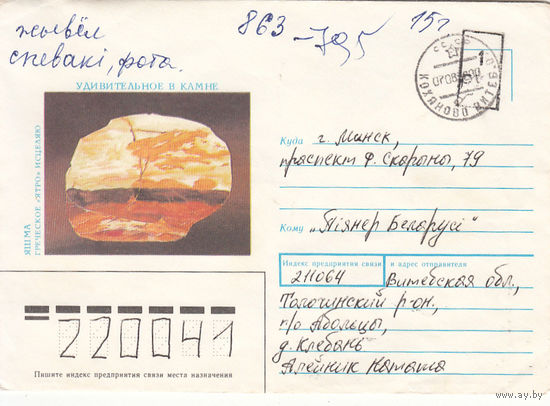 жывёл
спевакі, фота.
863
-795
15г
УДИВИТЕЛЬНОЕ В КАМНЕ
ЯШМА
ГРЕЧЕСКОЕ «ЯТРО» ИСЦЕЛЯЮ
КОХАНОВО ВИТЕБ.
Куда г. Минск,
праспект Ф. Скарыны, 79
Кому „Піянер Беларусі"
Индекс предприятия связи и адрес отправителя
211064 Витебская обл.,
Толочинский р-он.,
п/о Обольцы,
д. Клебань
Алейник Наташа
220041
Пишите индекс предприятия связи места назначения
www.ay.by